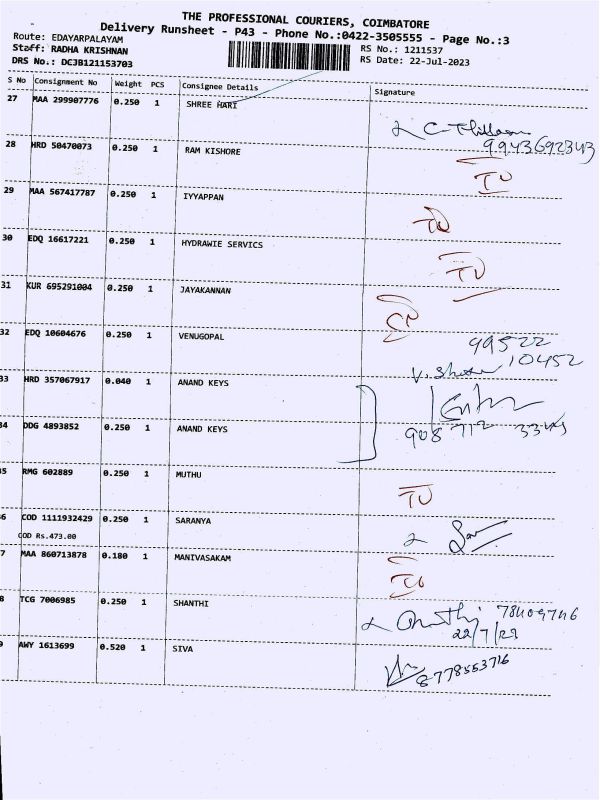 THE PROFESSIONAL COURIERS, COIMBATORE
Delivery Runsheet - P43 - Phone No.:0422-3505555 - Page No.:3
Route: EDAYARPALAYAM
Staff: RADHA KRISHNAN
RS No.: 1211537
DRS No.: DCJB121153703
RS Date: 22-Jul-2023
S No Consignment No Weight PCS Consignee Details Signature
27 MAA 299907776 0.250 1 SHREE HARI
9943692343
28 HRD 50470073 0.250 1 RAM KISHORE
TU
29 MAA 567417787 0.250 1 IYYAPPAN
30 EDQ 16617221 0.250 1 HYDRAWIE SERVICS
TU
31 KUR 695291004 0.250 1 JAYAKANNAN
32 EDQ 10604676 0.250 1 VENUGOPAL
99522
10452
33 HRD 357067917 0.040 1 ANAND KEYS
34 DDG 4893852 0.250 1 ANAND KEYS
908 712
5 RMG 602889 0.250 1 MUTHU
TU
6 COD 1111932429 0.250 1 SARANYA
COD Rs.473.00
7 MAA 860713878 0.180 1 MANIVASAKAM
8 TCG 7006985 0.250 1 SHANTHI
22/7/23
9 AWY 1613699 0.520 1 SIVA
8778553716